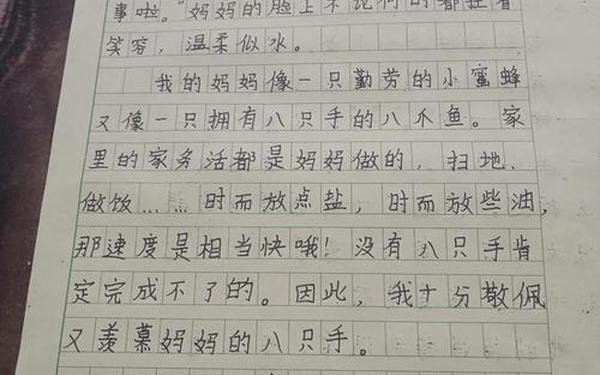 事啦。”妈妈的脸上不论何时都挂着
笑容，温柔似水。
我的妈妈像一只勤劳的小蜜蜂
又像一只拥有八只手的八爪鱼。家
里的家务活都是妈妈做的，扫地、
做饭……时而放点盐，时而放些油，
那速度是相当快哦！没有八只手肯
定完成不了的。因此，我十分敬佩
又羡慕妈妈的八只手。